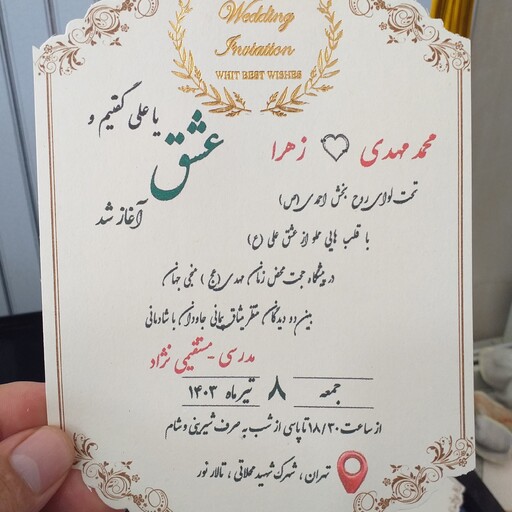 Wedding
Invitation
WHIT BEST WISHES
یا علی گفتیم و
عشق
آغاز شد
محمد مهدی زهرا
تحت لوای روح بخش احمدی (ص)
با قلب هایی مملو از عشق علی (ع)
در پیشگاه حجت محض زمان مهدی (عج) منجی جهان
بین دو دیدگان منتظر میثاق پیمانی جاودان با شادمانی
مدرسی - مستقیمی نژاد
جمعه ۸ تیرماه ۱۴۰۳
از ساعت ۱۸/۳۰ تا پاسی از شب به صرف شیرینی و شام
تهران ، شهرک شهید محلاتی ، تالار نور